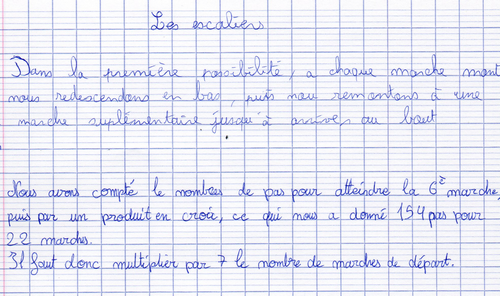 Les escaliers
Dans la première possibilité, a chaque marche mont
nous redescendons en bas, puis nou remontons à une
marche suplémentaire jusqu'à arrive, au bout
Nous avons compté le nombres de pas pour atteindre la 6e marche,
puis par un produit en croix, ce qui nous a donné 154 pas pour
22 marches.
Il faut donc multiplier par 7 le nombre de marches de départ.